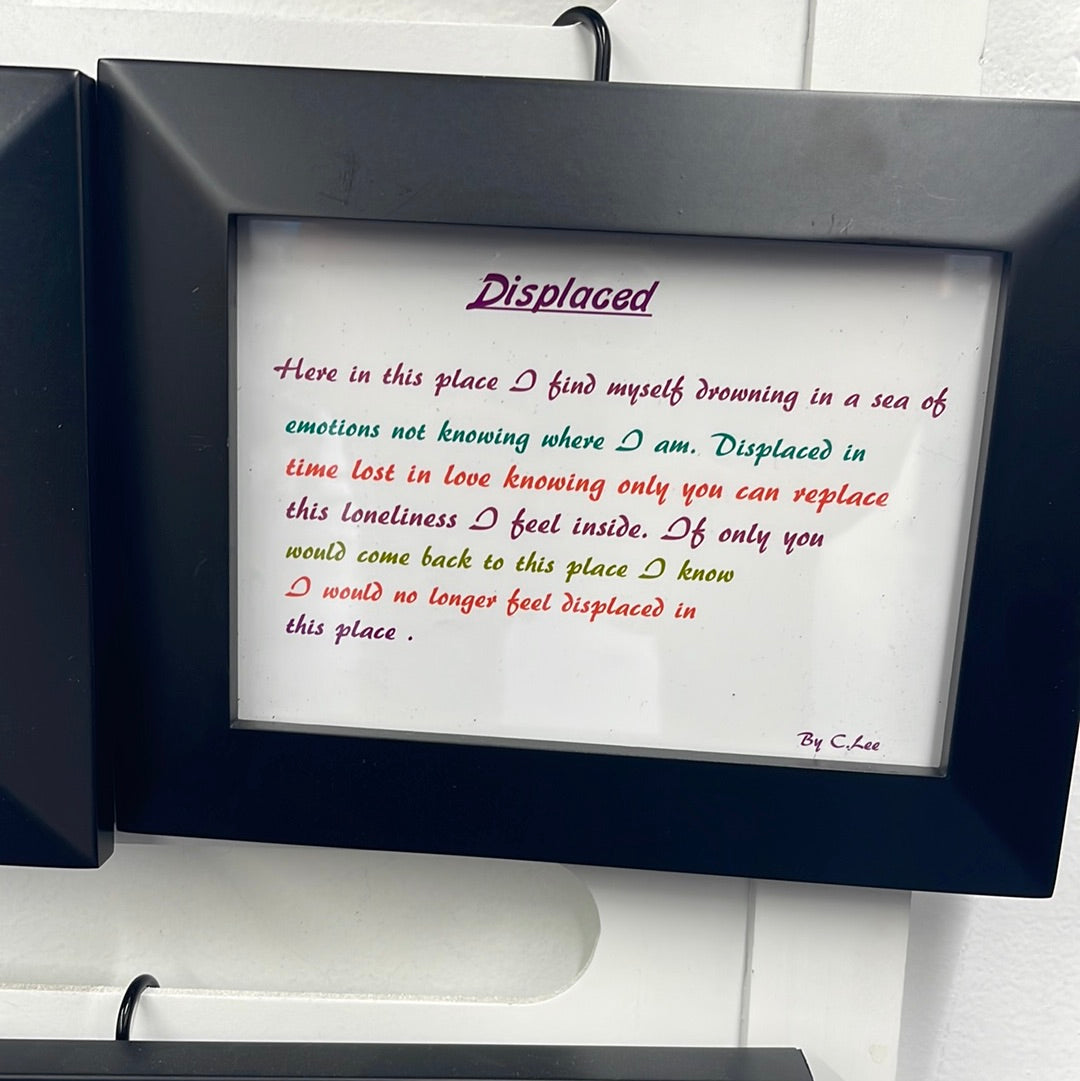 Displaced
Here in this place I find myself drowning in a sea of
emotions not knowing where I am. Displaced in
time lost in love knowing only you can replace
this loneliness I feel inside. If only you
would come back to this place I know
I would no longer feel displaced in
this place .
By C.Lee